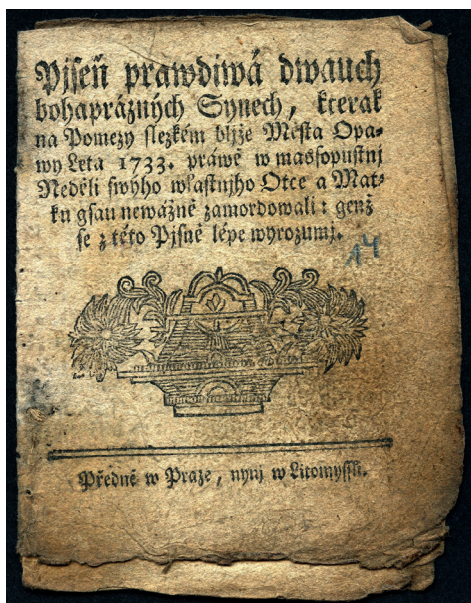 Pjseň prawdiwá dwauch
bohaprázných Synech, kterak
na Pomezy slezkém bljže Města Opa-
wy Leta 1733. práwě w masopustnj
Neděli swýho wlastnjho Otce a Mat-
ku gsau newážně zamordowali: genž
se z této Pjsně lépe wyrozumj.
14
Předně w Praze, nynj w Litomyssli.